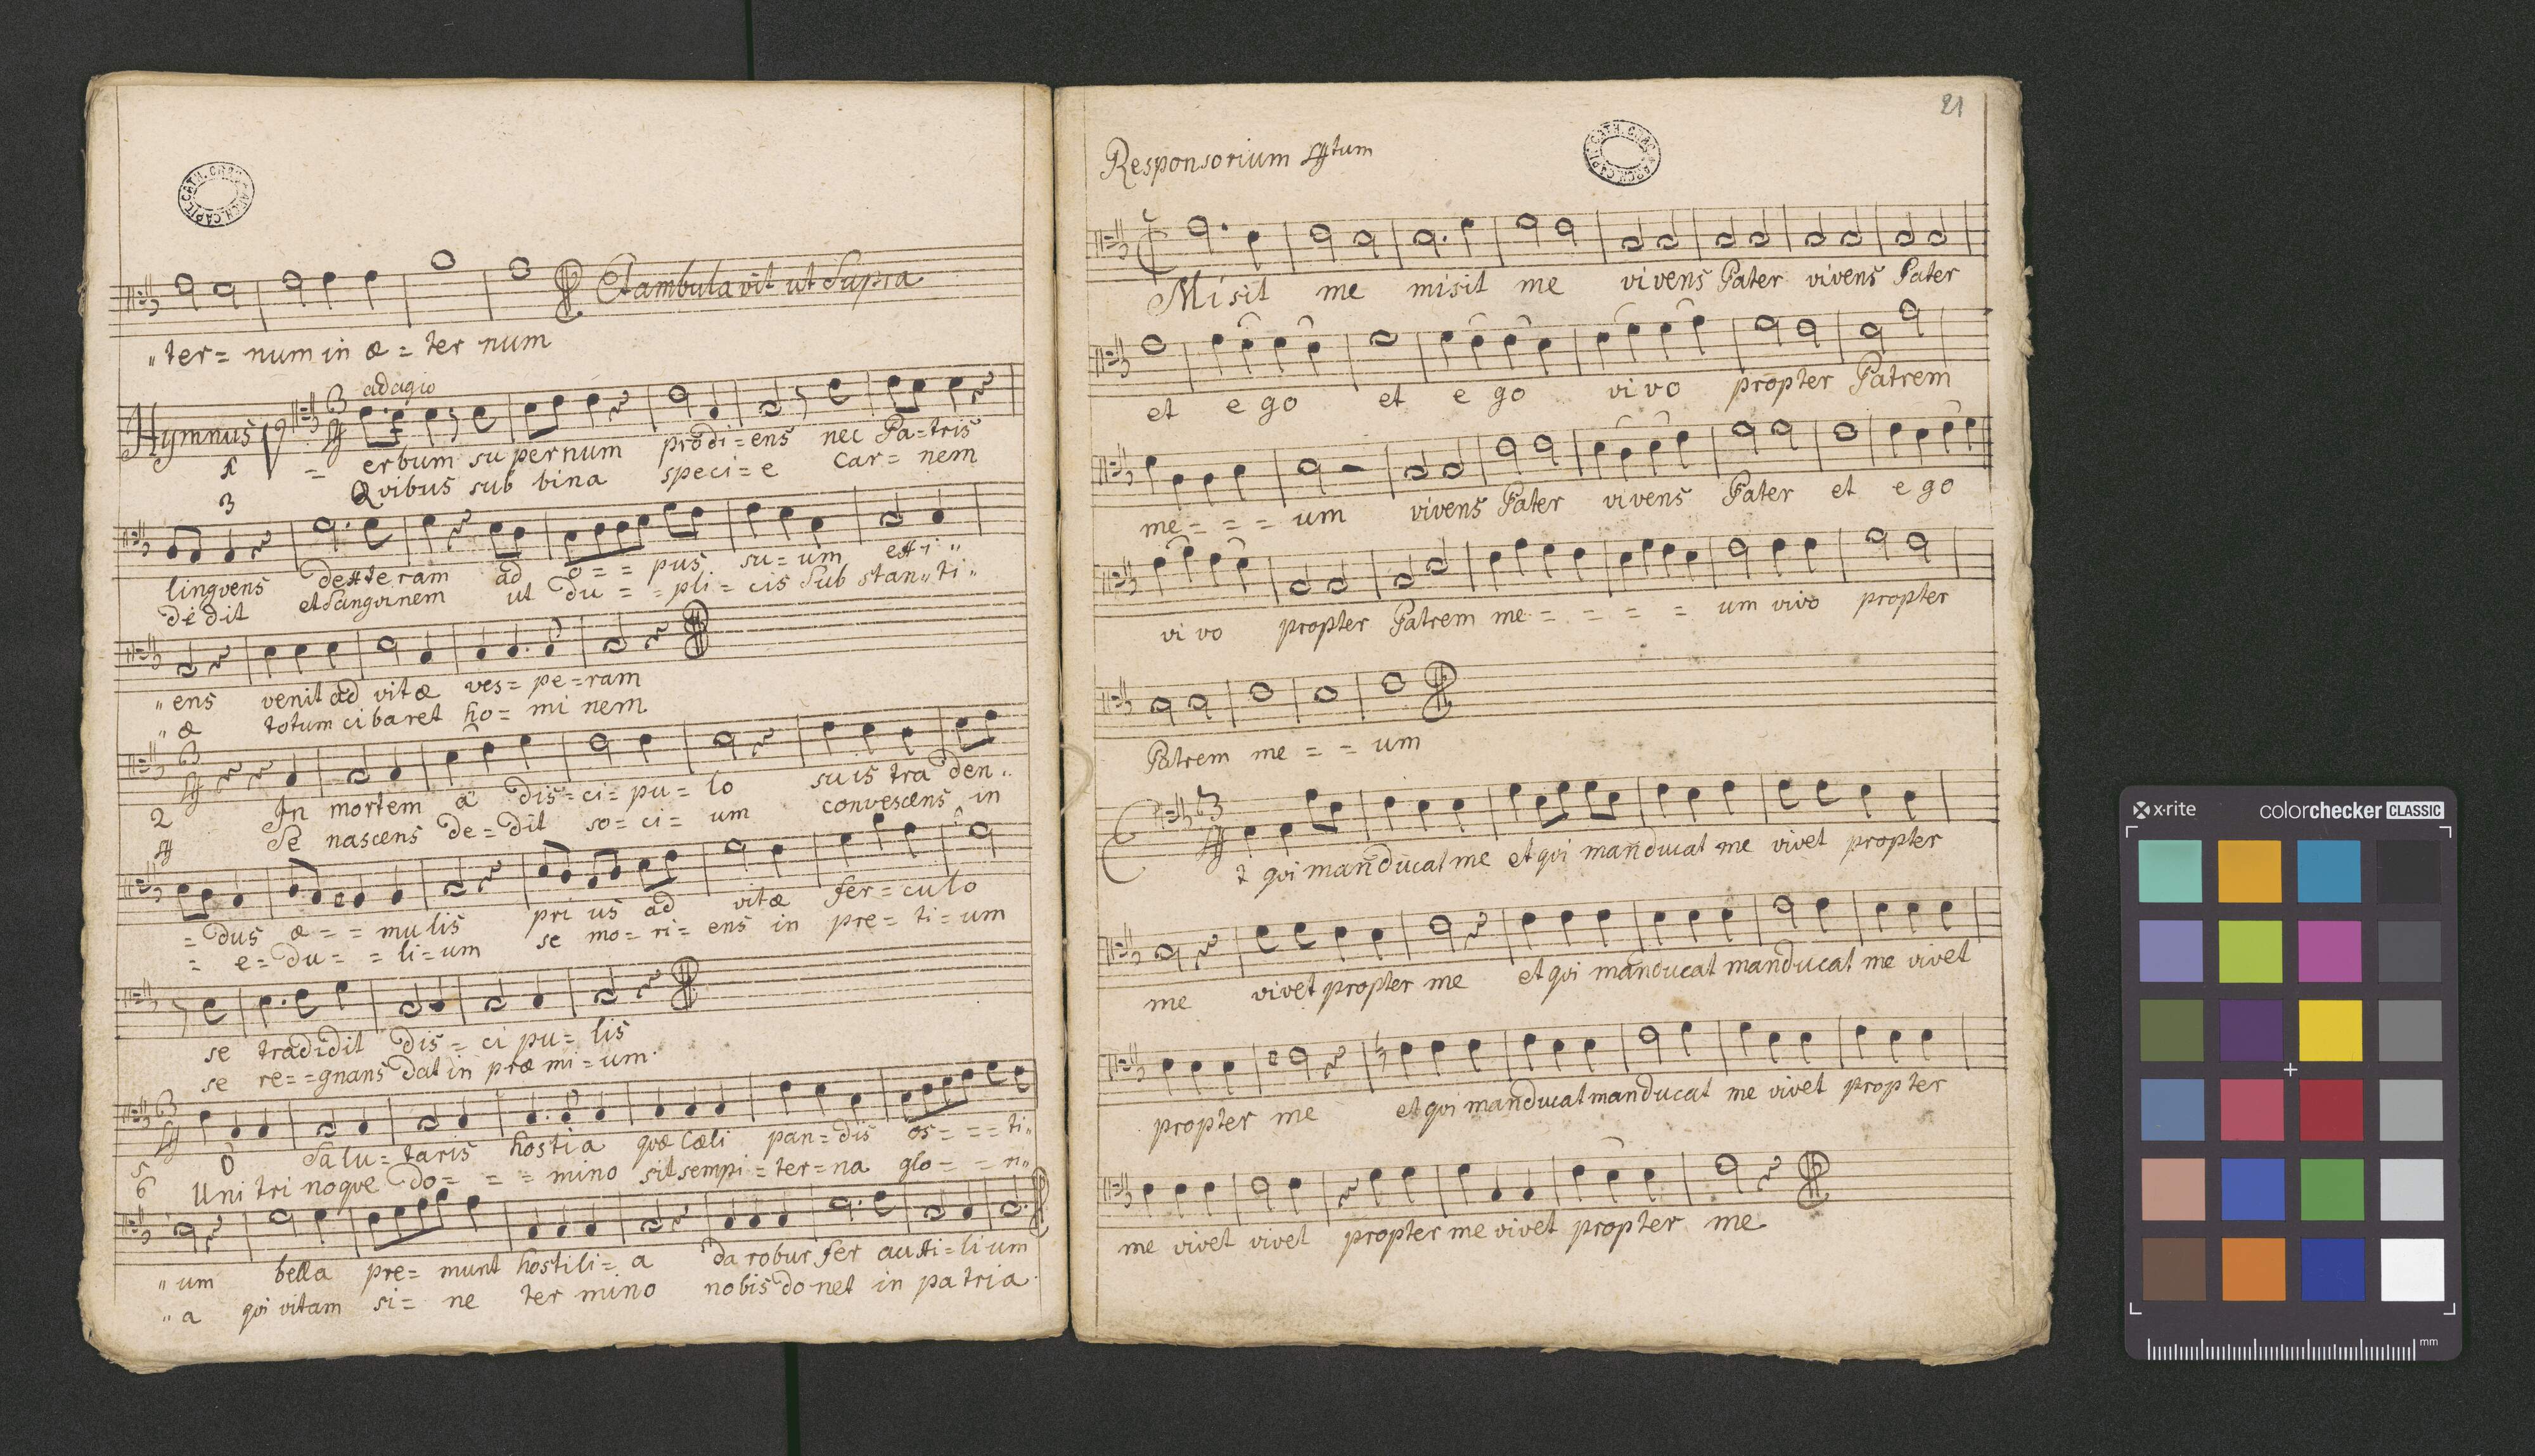 Et ambulavit ut Supra
„ter= num in æ= ter num
adagio
Hymnus V= erbum su pernum prodi= ens nec Pa= tris
1 3 Qvibus sub bina speci= e Car= nem
linqvens dexteram ad o= = pus su= um exi„
dedit et Sangvinem ut du= = pli= cis Sub stan„ti„
„ens venit ad vitæ ves= pe= ram
„æ totum cibaret ho= mi nem
2 In mortem a dis= ci= pu= lo suis tra den„
4 Se nascens de= dit so= ci= um convescens in
= dus æ= = mulis pri us ad vitæ fer= culo
= e= du= = li= um se mo= ri= ens in pre= ti= um
se tradidit dis= ci pu= lis
se re= =gnans dat in præ mi= um.
5 O Salu= taris hostia qvæ Cæli pan= dis os= = = ti„
6 Uni tri noqve Do= = = mino sit sempi= ter= na glo= = ri„
„um bella pre= munt hostili= a da robur fer auxi= lium
„a qvi vitam si= ne ter mino nobis do net in patria.
21
Responsorium 4tum
Misit me misit me vivens Pater vivens Pater
et ego et ego vivo propter Patrem
me= = = um vivens Pater vivens Pater et ego
vivo propter Patrem me= = = = um vivo propter
Patrem me= = um
Et qvi manducat me et qvi manducat me vivet propter
me vivet propter me et qvi manducat manducat me vivet
propter me et qvi manducat manducat me vivet propter
me vivet vivet propter me vivet propter me
x·rite colorchecker CLASSIC
mm